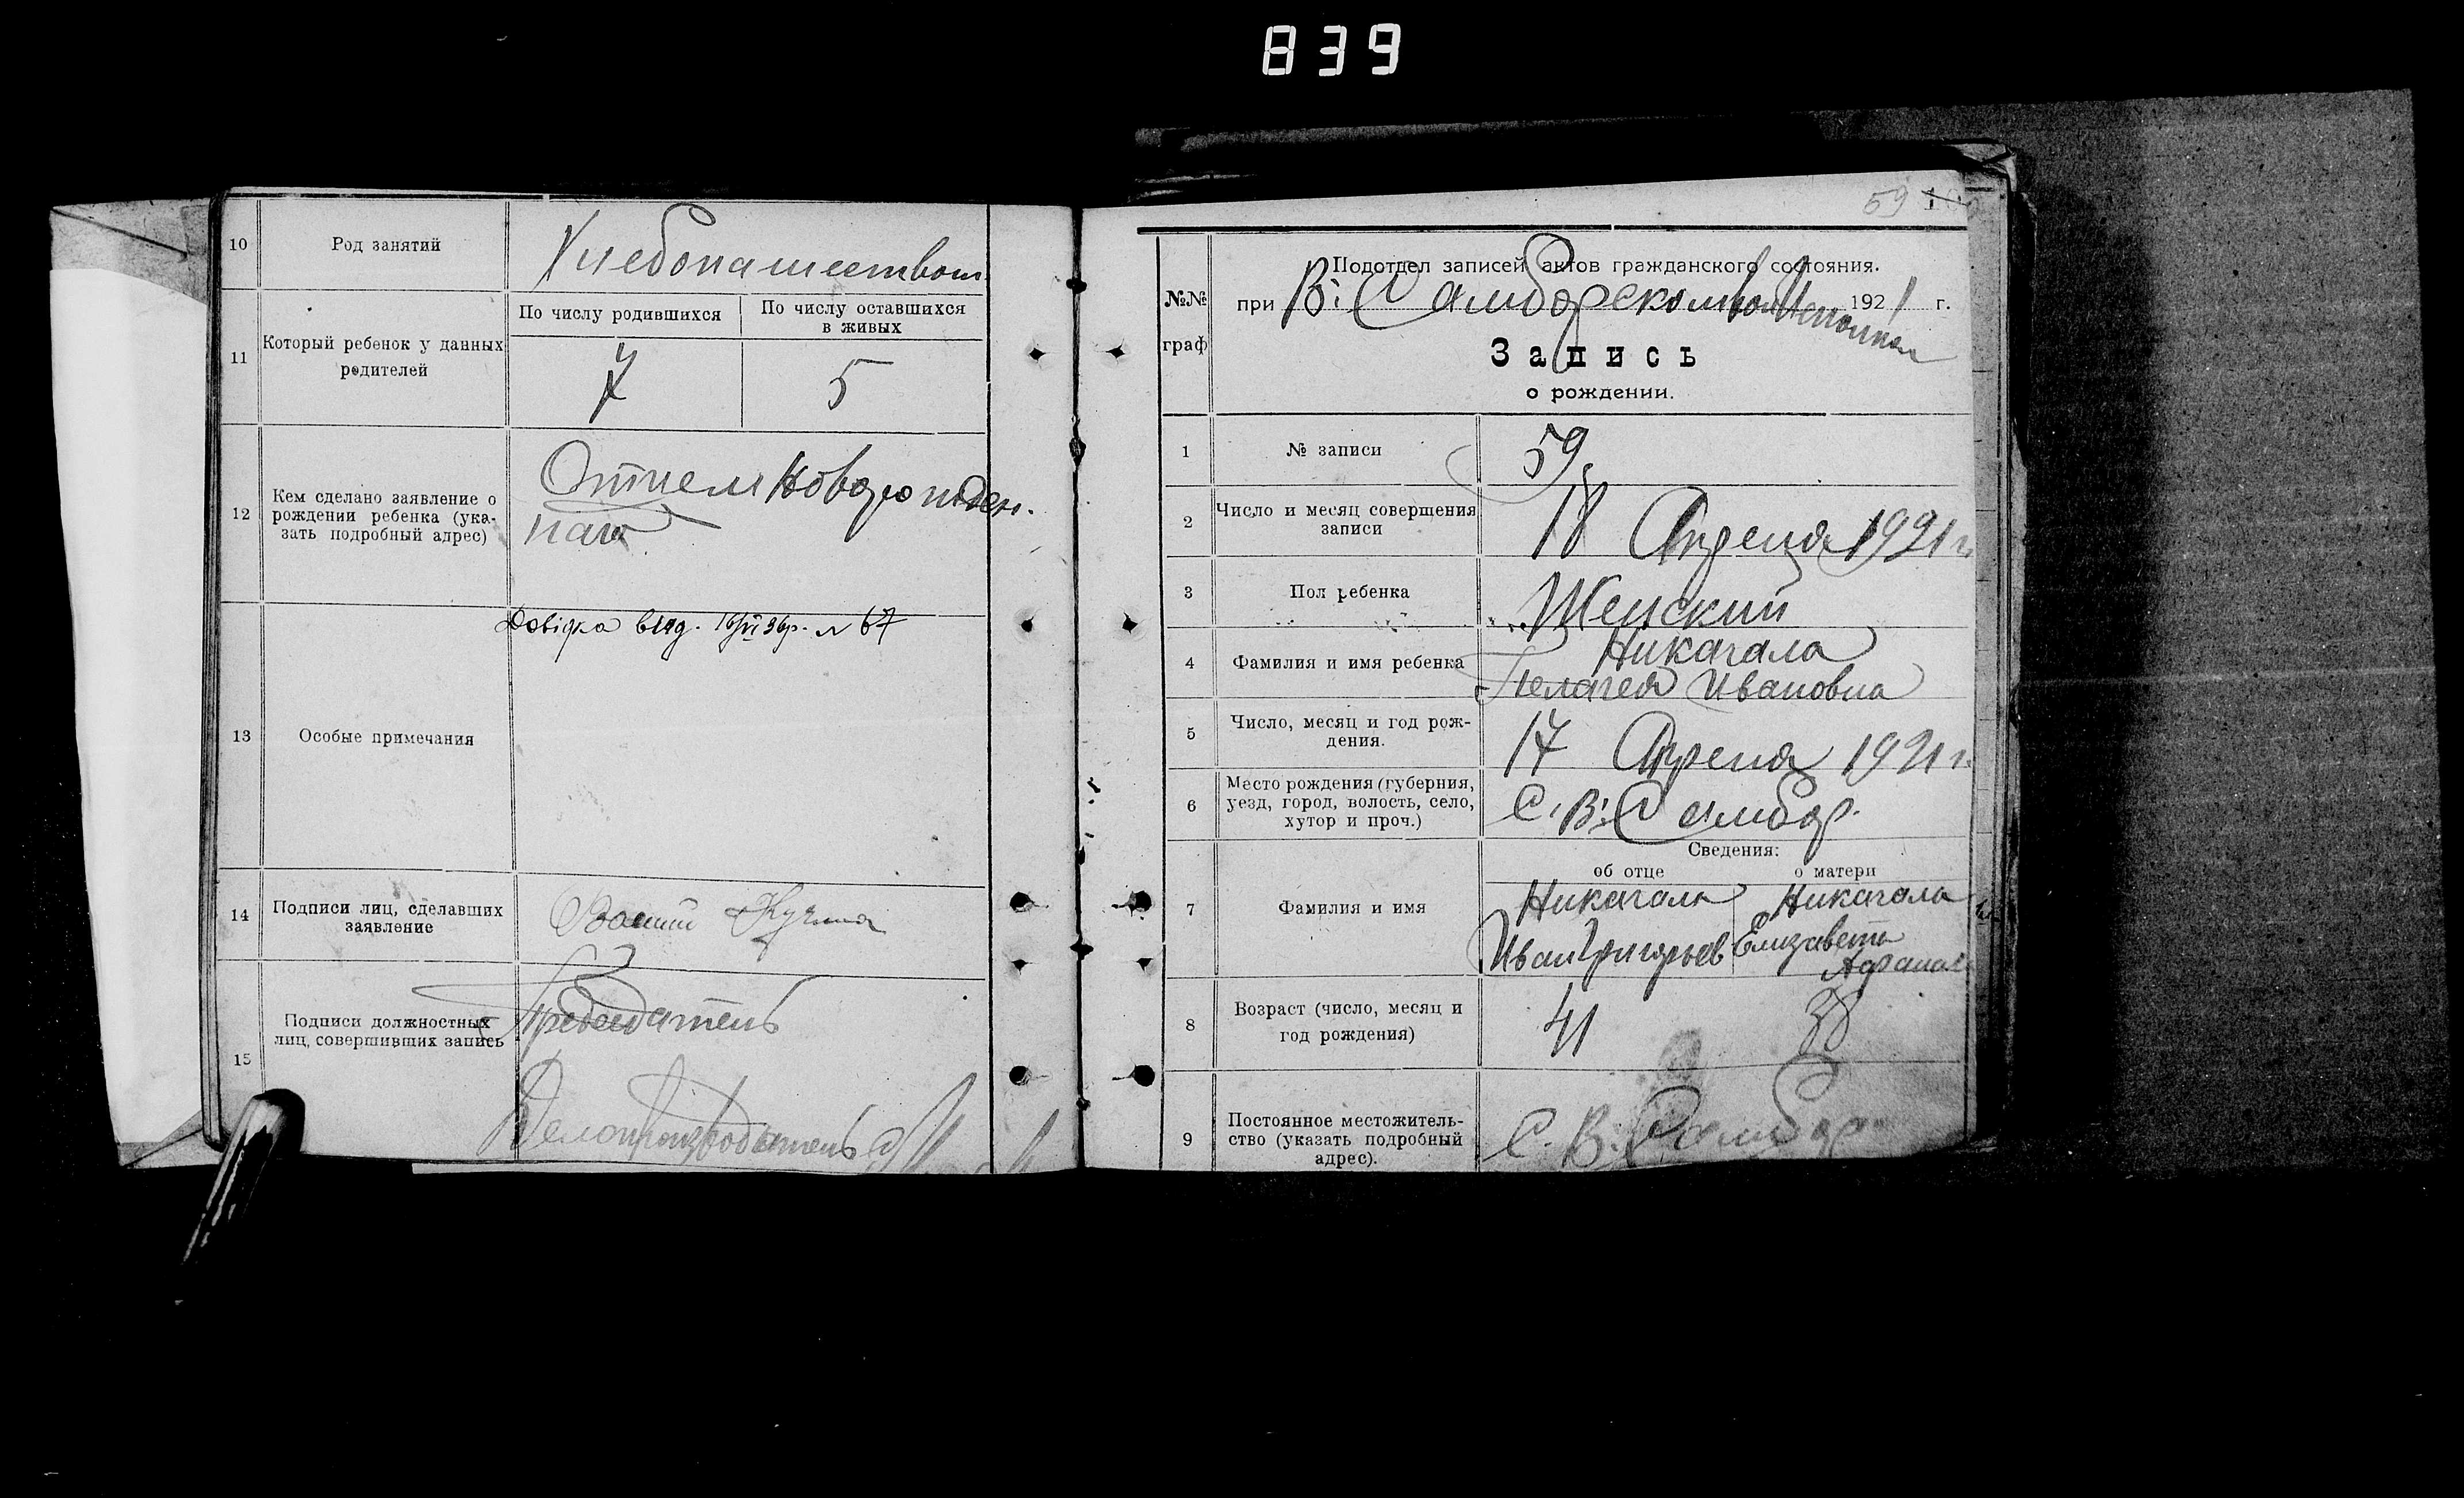 839
10 Род занятий Хлебопашеством
11 Который ребенок у данных родителей
По числу родившихся
По числу оставшихся
в живых
7 5
12 Кем сделано заявление о
рождении ребенка (ука-
зать подробный адрес)
Отцем Новорожден.
наго
13 Особые примечания
Довідка вид. 16/VI 36р. N 67
14 Подписи лиц, сделавших
заявление
15 Подписи должностных
лиц, совершивших запись
Председатель
Делопроизводитель
59
№№
граф
Подотдел записей актов гражданского состояния.
при В: Самборском 1921 г.
Запись
о рождении.
1 № записи 59
2 Число и месяц совершения
записи
18 Апреля 1921 г.
3 Пол ребенка Женский
4 Фамилия и имя ребенка
Никагала
Пелагея Ивановна
5 Число, месяц и год рож-
дения.
17 Апреля 1921 г.
6 Место рождения (губерния,
уезд, город, волость, село,
хутор и проч.)
С. В: Самбор.
Сведения:
об отце о матери
7 Фамилия и имя
Никагала Никагала
Иван Григорьев Елизавета
8 Возраст (число, месяц и
год рождения)
41 38
9 Постоянное местожитель-
ство (указать подробный
адрес).
С. В. Самбор